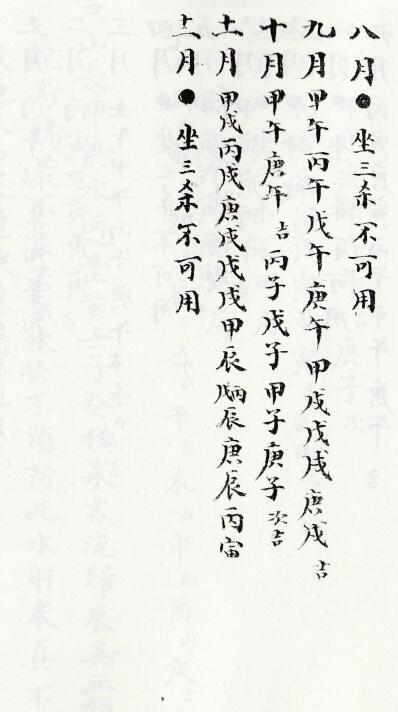 八月●坐三杀不可用
九月甲午丙午戊午庚午甲戌戊戌庚戌吉
十月甲午庚午吉丙子戊子甲子庚子次吉
十一月甲戌丙戌庚戌戊戌甲辰丙辰庚辰丙寅
十二月●坐三杀不可用